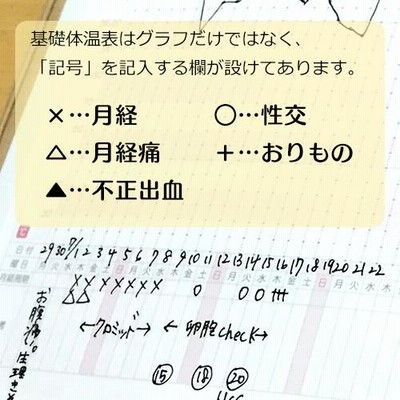 基礎体温表はグラフだけではなく、
「記号」を記入する欄が設けてあります。
×…月経
○…性交
△…月経痛
＋…おりもの
▲…不正出血
日付 29 30 7/1 2 3 4 5 6 7 8 9 10 11 12 13 14 15 16 17 18 19 20 21 22
曜日 月火水木金土日月火水木金土日月火水木金土日月火水木
××××××××
△△
○ ○○
+++
←クロミッド→ ←卵胞check→
お腹痛い。
⑮ ⑱ ⑳